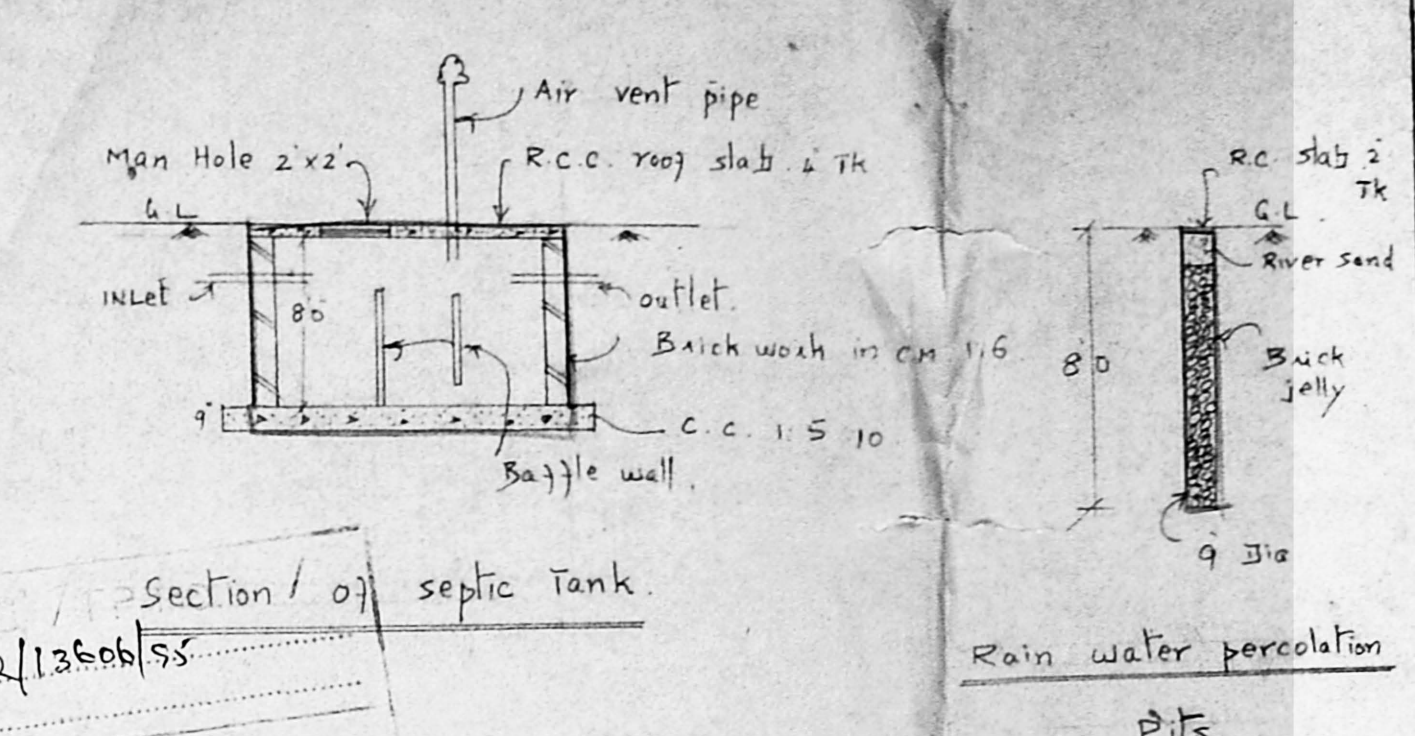 Air vent pipe
Man Hole 2'x2'
R.C.C. roof slab 4" Tk
G.L
INLet
8'0
outlet.
Brick work in CM 1:6
9"
C.C. 1:5:10
Baffle wall.
Section of septic Tank.
13606/95
R.C. slab 2"
Tk
G.L.
River sand
8'0
Brick
jelly
9" Dia
Rain water percolation
Pits